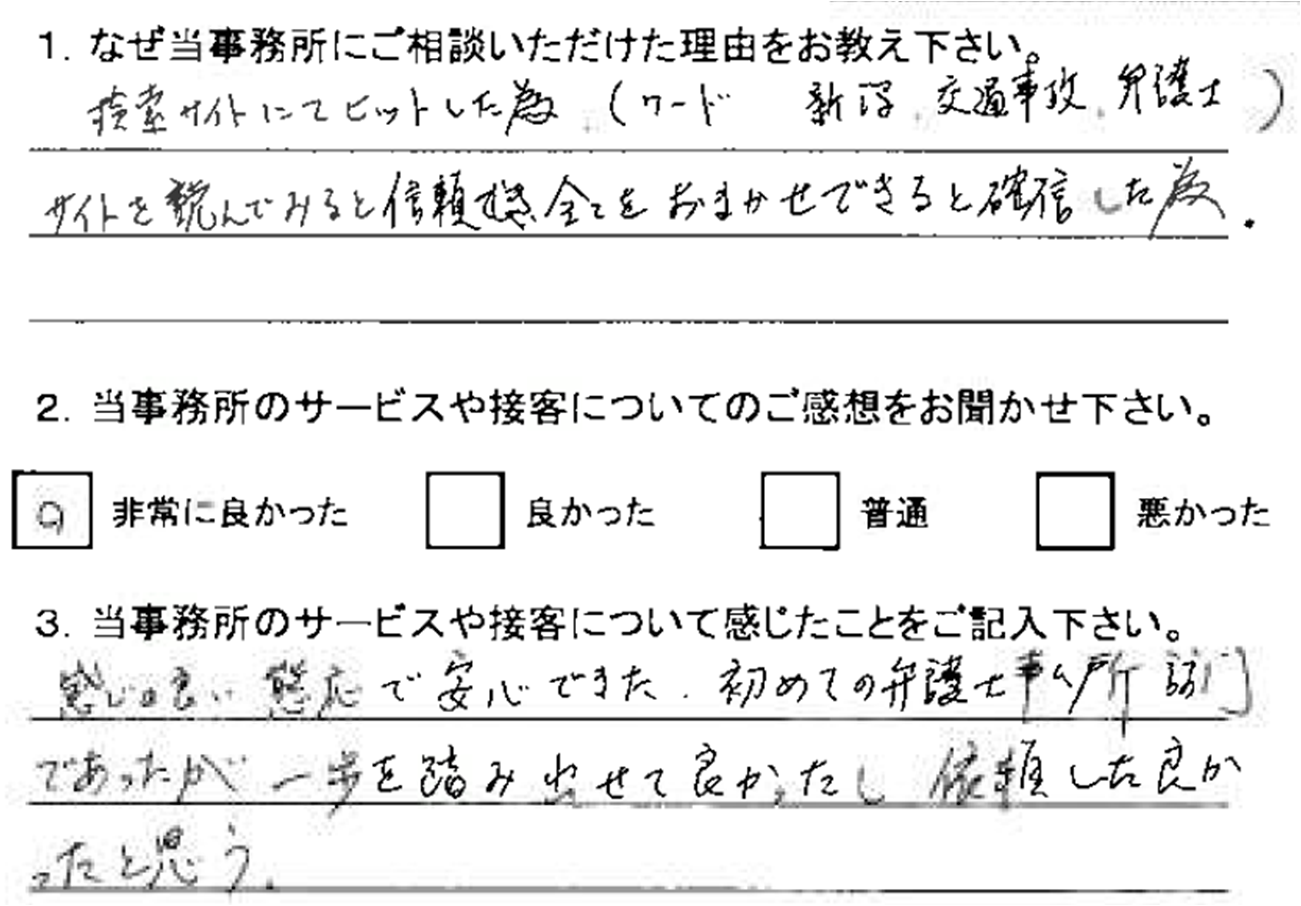 1. なぜ当事務所にご相談いただけた理由をお教え下さい。
検索サイトにてヒットした為。(ワード 新潟、交通事故、弁護士)
サイトを読んでみると信頼でき、全てをおまかせできると確信した為。
2. 当事務所のサービスや接客についてのご感想をお聞かせ下さい。
非常に良かった 良かった 普通 悪かった
3. 当事務所のサービスや接客について感じたことをご記入下さい。
感じの良い 態応で安心できた。初めての弁護士事ム所訪問
であったが 一歩を踏み出せて良かったし 依頼した良か
ったと思う。